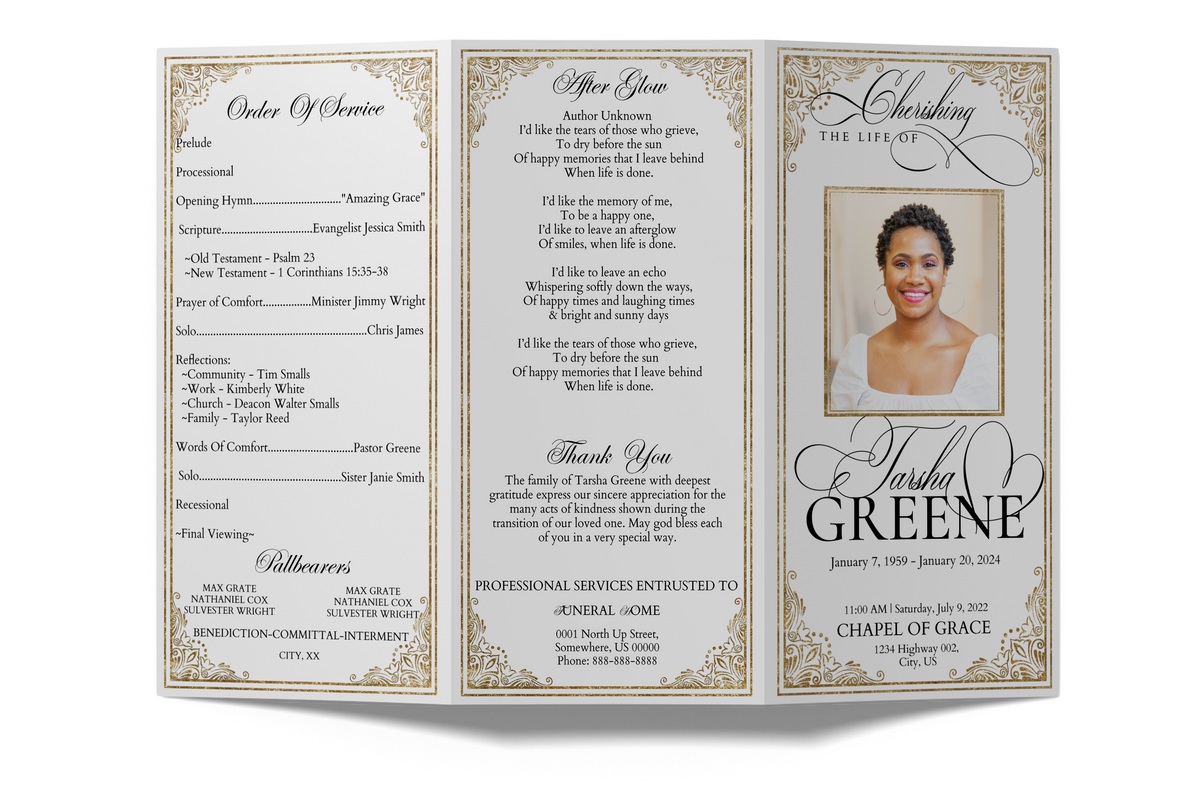 Order Of Service
Prelude
Processional
Opening Hymn..............................."Amazing Grace"
Scripture................................Evangelist Jessica Smith
~Old Testament - Psalm 23
~New Testament - 1 Corinthians 15:35-38
Prayer of Comfort.................Minister Jimmy Wright
Solo.............................................................Chris James
Reflections:
~Community - Tim Smalls
~Work - Kimberly White
~Church - Deacon Walter Smalls
~Family - Taylor Reed
Words Of Comfort...............................Pastor Greene
Solo...................................................Sister Janie Smith
Recessional
~Final Viewing~
Pallbearers
MAX GRATE
NATHANIEL COX
SULVESTER WRIGHT
MAX GRATE
NATHANIEL COX
SULVESTER WRIGHT
BENEDICTION-COMMITTAL-INTERMENT
CITY, XX
After Glow
Author Unknown
I'd like the tears of those who grieve,
To dry before the sun
Of happy memories that I leave behind
When life is done.
I'd like the memory of me,
To be a happy one,
I'd like to leave an afterglow
Of smiles, when life is done.
I'd like to leave an echo
Whispering softly down the ways,
Of happy times and laughing times
& bright and sunny days
I'd like the tears of those who grieve,
To dry before the sun
Of happy memories that I leave behind
When life is done.
Thank You
The family of Tarsha Greene with deepest
gratitude express our sincere appreciation for the
many acts of kindness shown during the
transition of our loved one. May god bless each
of you in a very special way.
PROFESSIONAL SERVICES ENTRUSTED TO
FUNERAL HOME
0001 North Up Street,
Somewhere, US 00000
Phone: 888-888-8888
Cherishing
THE LIFE OF
Tarsha
GREENE
January 7, 1959 - January 20, 2024
11:00 AM | Saturday, July 9, 2022
CHAPEL OF GRACE
1234 Highway 002,
City, US